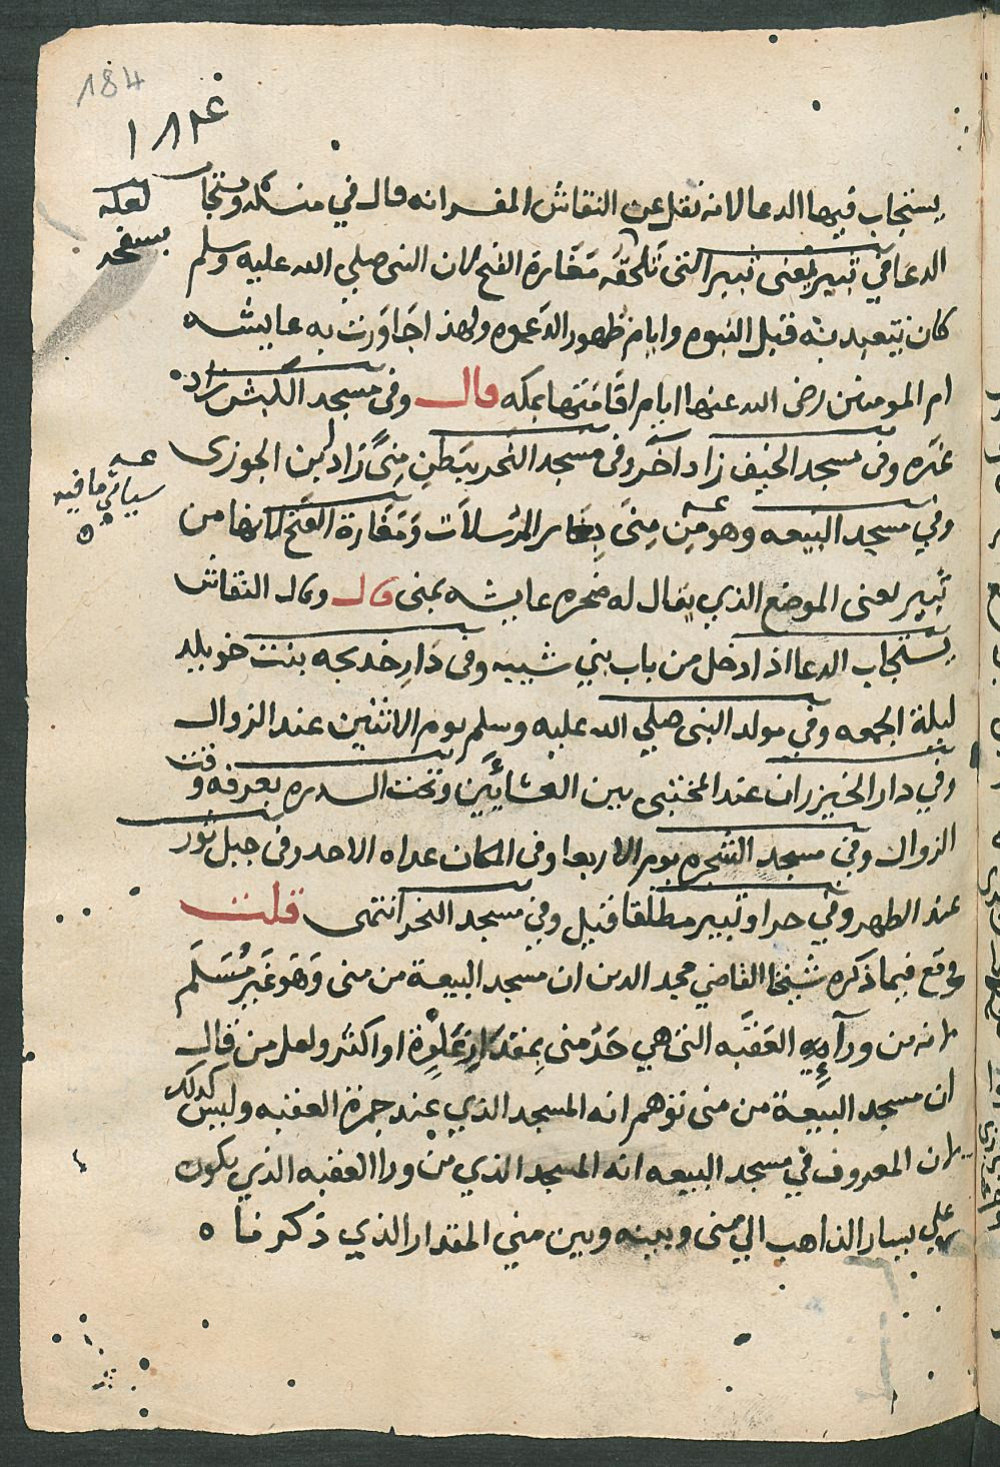 184
١٨٤
يستجاب فيها الدعا لانه نقل عن النقاش المفسر انه قال في منسكه ويستجاب
لعله
بسفحه
الدعا في ثبير يعني ثبير التي تلحقه مغارة الفتح لان النبي صلي الله عليه وسلم
كان يتعبد فيه قبل النبوه وايام ظهور الدعوه ولهذا جاورت به عايشه
ام المومنين رضي الله عنها ايام اقامتها بمكه قال وفي مسجد الكبش زاد
غيره وفي مسجد الخيف زاد اخر وفي مسجد النحر ببطن منًى زاد ابن الجوزي
سياتي ما فيه
وفي مسجد البيعه وهو من منى وغار المرسلات ومغارة الفتح لانها من
ثبير يعني الموضع الذي يقال له صخره عايشه بمنى قال وقال النقاش
يستجاب الدعا اذا دخل من باب بني شيبه وفي دار خديجه بنت خويلد
ليلة الجمعه وفي مولد النبي صلي الله عليه وسلم يوم الاثنين عند الزوال
وفي دار الخيزران عند المختبى بين العشايَين وتحت السدره بعرفه وقت
الزوال وفي مسجد الشجره يوم الاربعا وفي المتكا غداه الاحد وفي جبل ثور
عند الظهر وفي حرا وثبير مطلقا قيل وفي مسجد النحر انتهى قلت
وقع فيما ذكره شيخنا القاضي مجد الدين ان مسجد البيعة من منى وَهَو غَير مُسَلَم
لانه من ورآء العَقَبَه التي هي حَدُ منى بمقدار غَلوة او اكثر ولعل من قال
ان مسجد البيعة من منى توهم انه المسجد الذي عند جمرة العقبه وليس كذلك
لان المعروف في مسجد البيعه انه المسجد الذي من ورا العقبه الذي يكون
علي يسار الذاهب الي منى وبينه وبين منى المقدار الذي ذكرنا ه